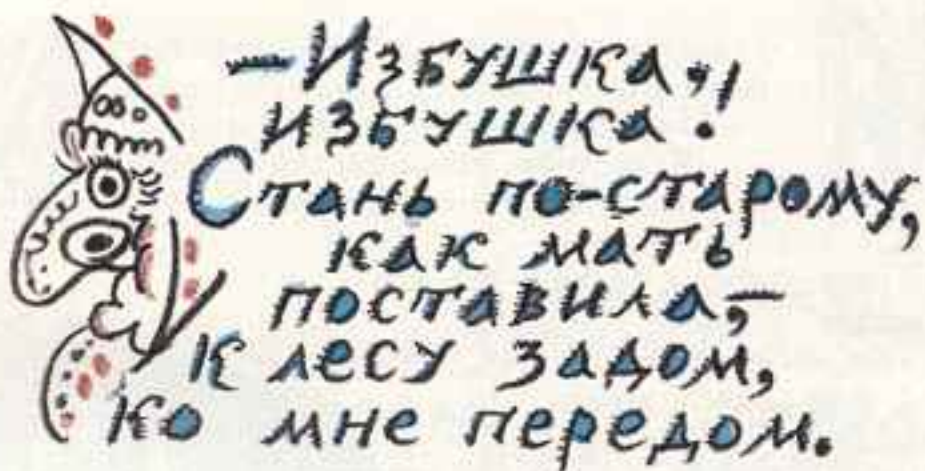 — Избушка,
избушка!
Стань по-старому,
как мать
поставила, —
к лесу задом,
ко мне передом.